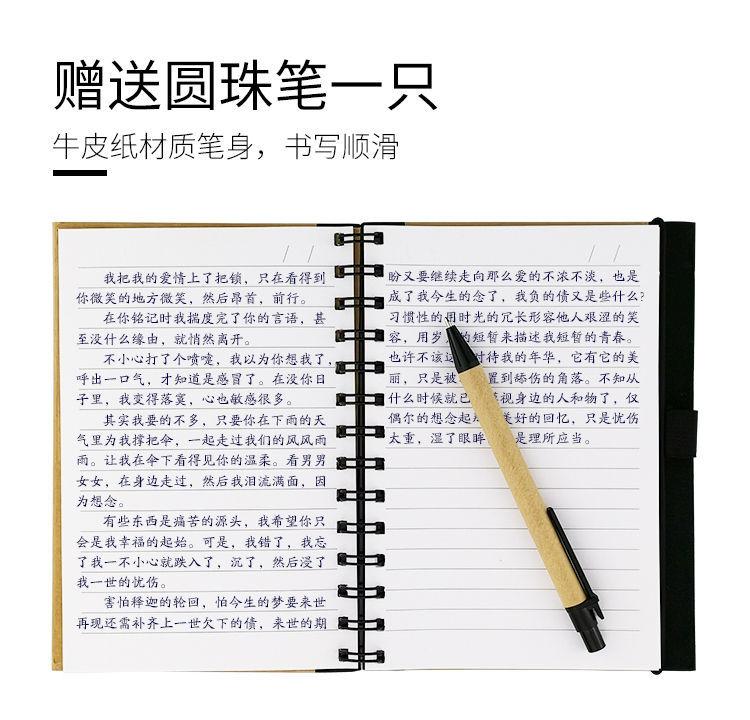 赠送圆珠笔一只
牛皮纸材质笔身，书写顺滑
我把我的爱情上了把锁，只在看得到
你微笑的地方微笑，然后昂首，前行。
在你铭记时我揣度完了你的言语，甚
至没什么缘由，就悄然离开。
不小心打了个喷嚏，我以为你想我了，
呼出一口气，才知道是感冒了。在没你日
子里，我变得落寞，心也敏感很多。
其实我要的不多，只要你在下雨的天
气里为我撑把伞，一起走过我们的风风雨
雨。让我在伞下看得见你的温柔。看男男
女女，在身边走过，然后我泪流满面，因
为想念。
有些东西是痛苦的源头，我希望你只
会是我幸福的起始。可是，我错了，我忘
了我一不小心就跌入了，沉了，然后浸了
我一世的忧伤。
害怕释迦的轮回，怕今生的梦要来世
再现还需补齐上一世欠下的债，来世的期
盼又要继续走向那么爱的不浓不淡，也是
成了我今生的念了，我负的债又是些什么?
习惯性的用时光的冗长形容他人艰涩的笑
容，用岁 的短暂来描述我短暂的青春。
也许不该这 对待我的年华，它有它的美
丽，只是被 置到舔伤的角落。不知从
什么时候就已 视身边的人和物了，仅
偶尔的想念起 美好的回忆，只是忧伤
太重，湿了眼眸 是理所应当。